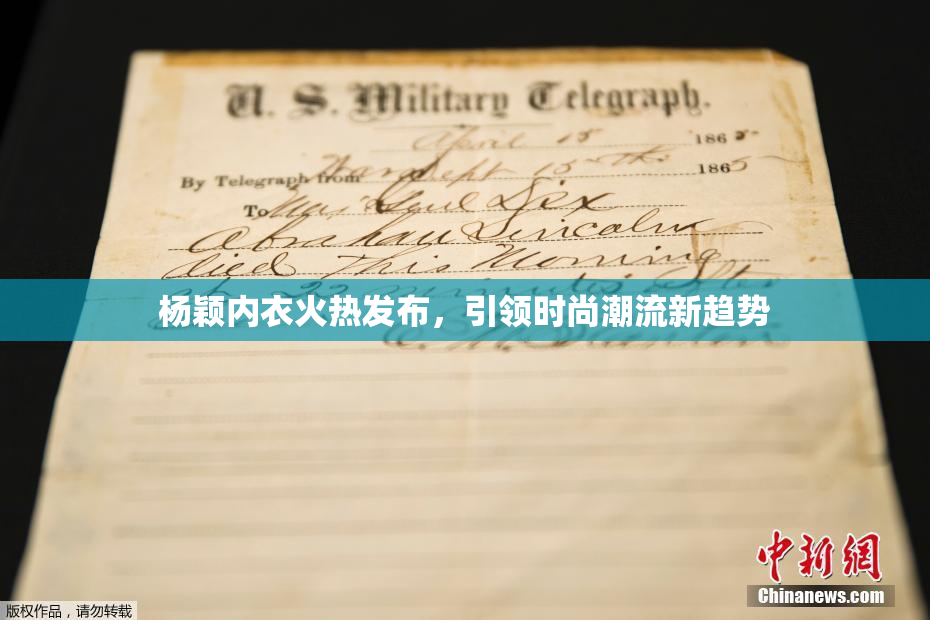 U. S. Military Telegraph.
April 15 1865
By Telegraph from War Dept 15th 1865
To Maj Genl Dix
Abraham Lincoln
died This Morning
at 22 minutes after
杨颖内衣火热发布，引领时尚潮流新趋势
E. M. Stanton
中新网
Chinanews.com
版权作品，请勿转载